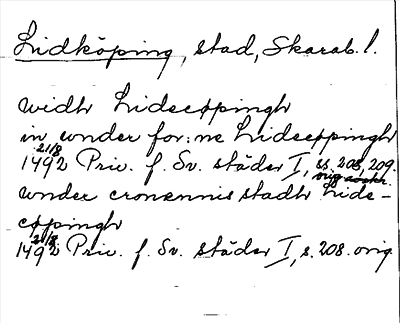 Lidköping, stad, Skarab. l.
widh Lidecøpingh
in vnder for:ne Lidecøppingh
21/8 1492 Priv. f. Sv. städer I, ss. 208, 209. orig
vnder cronennis stadh Lide-
cøpingh
21/8 1492 Priv. f. Sv. städer I, s. 208. orig.